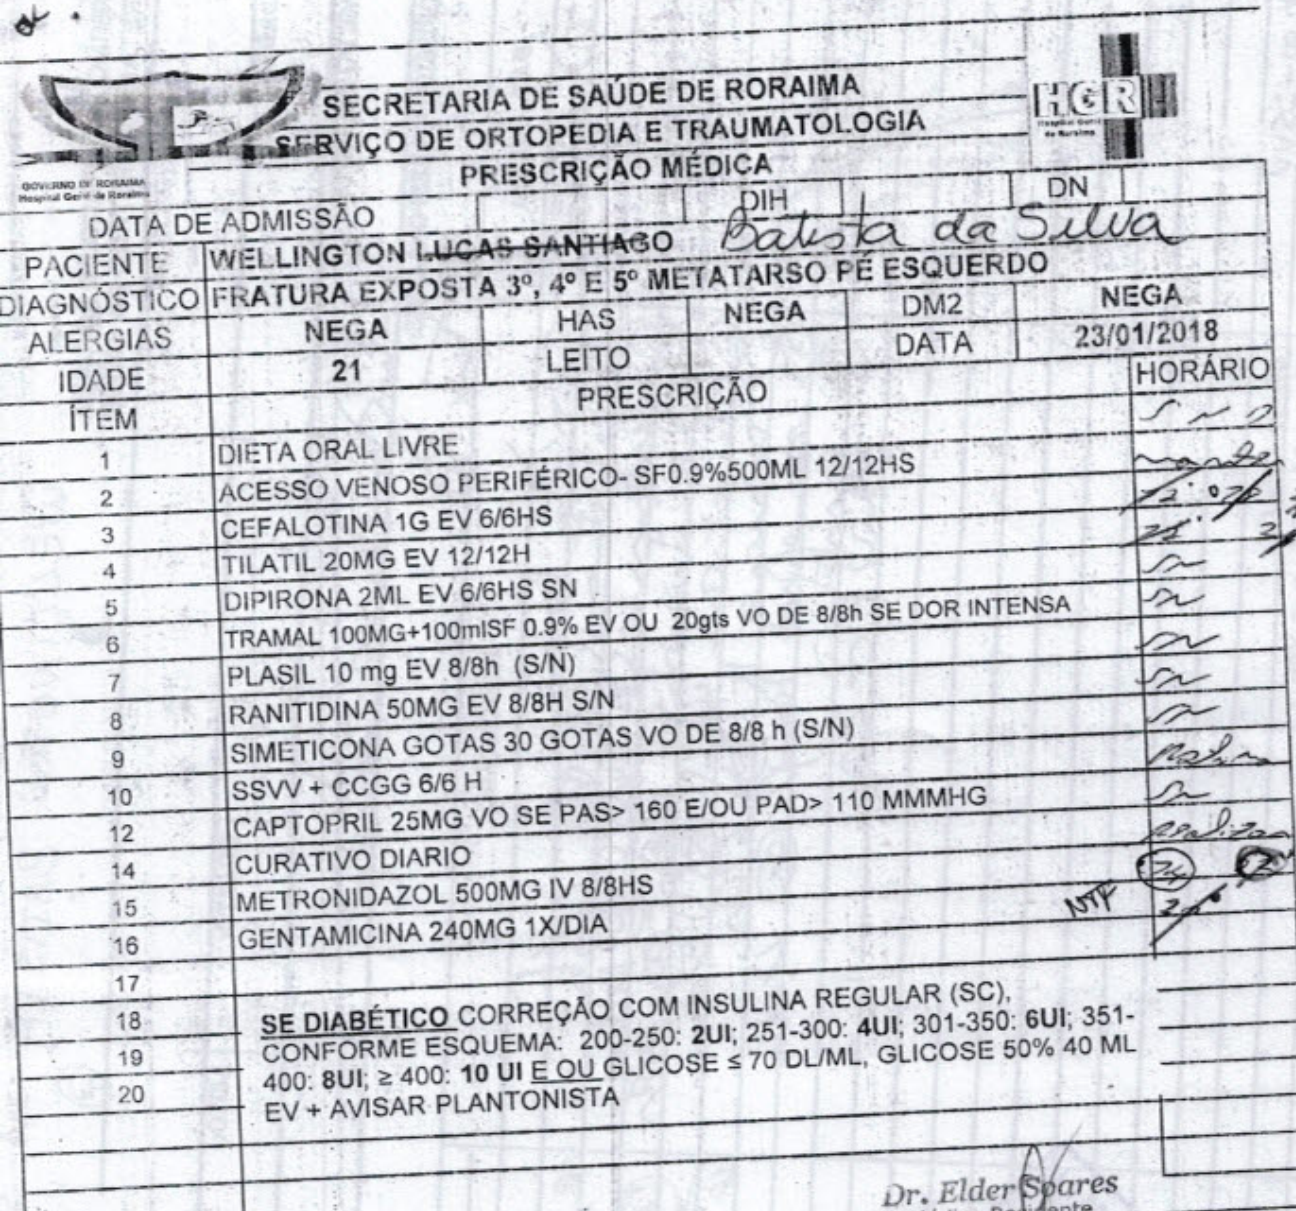 SECRETARIA DE SAÚDE DE RORAIMA
SERVIÇO DE ORTOPEDIA E TRAUMATOLOGIA
PRESCRIÇÃO MÉDICA
HGR
Hospital Geral de Roraima
GOVERNO DE RORAIMA
Hospital Geral de Roraima
DATA DE ADMISSÃO DIH DN
PACIENTE WELLINGTON LUCAS SANTIAGO Batista da Silva
DIAGNÓSTICO FRATURA EXPOSTA 3º, 4º E 5º METATARSO PÉ ESQUERDO
ALERGIAS NEGA HAS NEGA DM2 NEGA
IDADE 21 LEITO DATA 23/01/2018
ÍTEM PRESCRIÇÃO HORÁRIO
1 DIETA ORAL LIVRE
2 ACESSO VENOSO PERIFÉRICO- SF0.9%500ML 12/12HS
3 CEFALOTINA 1G EV 6/6HS
4 TILATIL 20MG EV 12/12H
5 DIPIRONA 2ML EV 6/6HS SN
6 TRAMAL 100MG+100mlSF 0.9% EV OU 20gts VO DE 8/8h SE DOR INTENSA
7 PLASIL 10 mg EV 8/8h (S/N)
8 RANITIDINA 50MG EV 8/8H S/N
9 SIMETICONA GOTAS 30 GOTAS VO DE 8/8 h (S/N)
10 SSVV + CCGG 6/6 H
12 CAPTOPRIL 25MG VO SE PAS> 160 E/OU PAD> 110 MMMHG
14 CURATIVO DIARIO
15 METRONIDAZOL 500MG IV 8/8HS
16 GENTAMICINA 240MG 1X/DIA
17
18 SE DIABÉTICO CORREÇÃO COM INSULINA REGULAR (SC),
19 CONFORME ESQUEMA: 200-250: 2UI; 251-300: 4UI; 301-350: 6UI; 351-
20 400: 8UI; ≥ 400: 10 UI E OU GLICOSE ≤ 70 DL/ML, GLICOSE 50% 40 ML
EV + AVISAR PLANTONISTA
Dr. Elder Soares